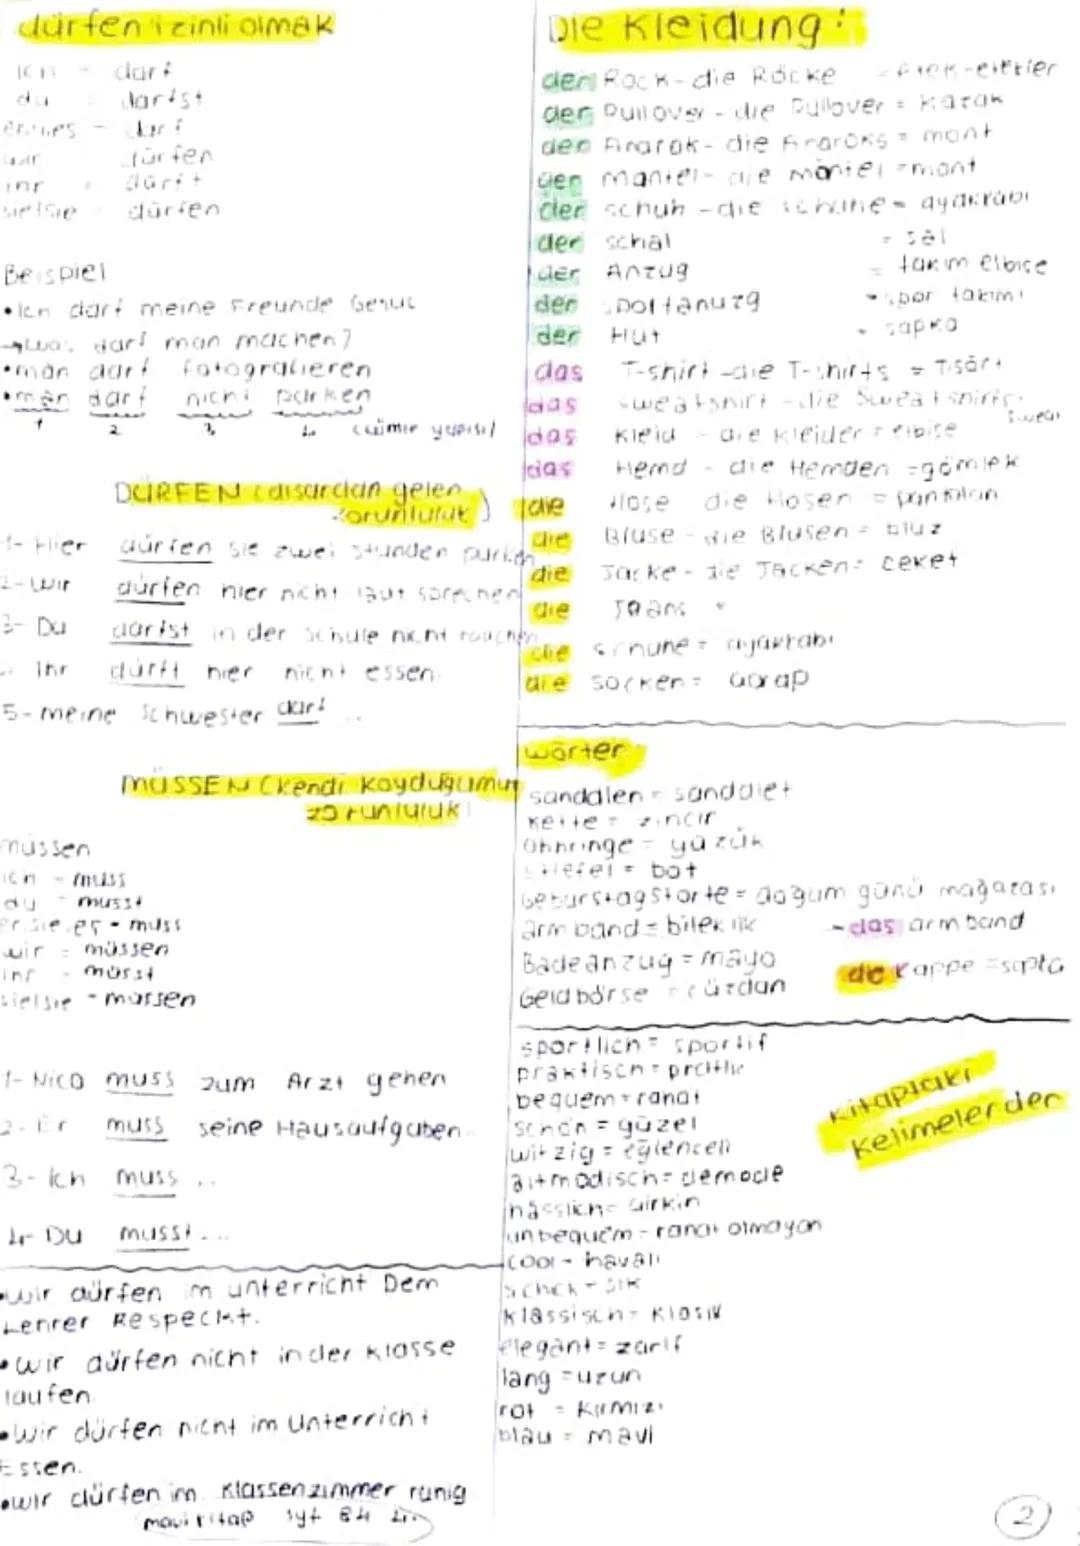 dürfen izinli olmak
ich - darf
du - darfst
er/sie/es - darf
wir dürfen
ihr dürft
sie/Sie dürfen
Beispiel
• Ich darf meine Freunde
→ Was darf man machen?
• man darf fotografieren
• man darf nicht parken
1 2 3 4 (cümle yapısı)
DÜRFEN (dısardan gelen
zorunluluk)
1- Hier dürfen sie zwei stunden parken
2- Wir dürfen hier nicht laut sprechen
3- Du darfst in der Schule nicht rauchen
Ihr dürft hier nicht essen.
5- meine Schwester darf ..
MÜSSEN (kendi koyduğumuz
zorunluluk)
müssen
ich - muss
du - musst
er.sie.es - muss
wir = müssen
ihr - müsst
sie/sie - müssen
1- Nico muss zum Arzt gehen
2- Er muss seine Hausaufgaben..
3- Ich muss ..
4- Du musst...
• wir dürfen im unterricht Dem
Lehrer Respeckt.
• wir dürfen nicht in der klasse
laufen.
• Wir dürfen nicht im Unterricht
Essen.
• wir dürfen im Klassenzimmer ruhig
mavi kitap syf 84
Die Kleidung:
der Rock - die Röcke = etek-etekler
der Pullover - die Pullover = Kazak
der Anarok - die Anaroks = mont
der mantel - die mäntel = mont
der schuh - die schuhe = ayakkabı
der schal = şal
der Anzug = takım elbise
der Sportanuzg = spor takımı
der Hut = şapka
das T-shirt - die T-shirts = Tişört
das sweatshirt - die Sweatshirts = Sweat
das Kleid - die Kleider = elbise
das Hemd - die Hemden = gömlek
die Hose die Hosen = pantolon
die Bluse - die Blusen = bluz
die Jacke - die Jacken = ceket
die Jeans
die schuhe = ayakkabı
die socken = çorap
wörter
sandalen = sandalet
kette = zincir
ohhringe = yüzük
stiefel = bot
Geburstagstorte = doğum günü mağazası
armband = bileklik - das armband
Badeanzug = mayo die Kappe = şapka
Geldbörse = cüzdan
sportlich = sportif
praktisch = pratik
bequem = rahat
schön = güzel
witzig = eğlenceli
altmodisch = demode
hässlich = çirkin
unbequem = rahat olmayan
cool = havalı
schick = şık
klassisch = klasik
elegant = zarif
lang = uzun
rot = kırmızı
blau = mavi
kitaptaki
kelimelerden
2